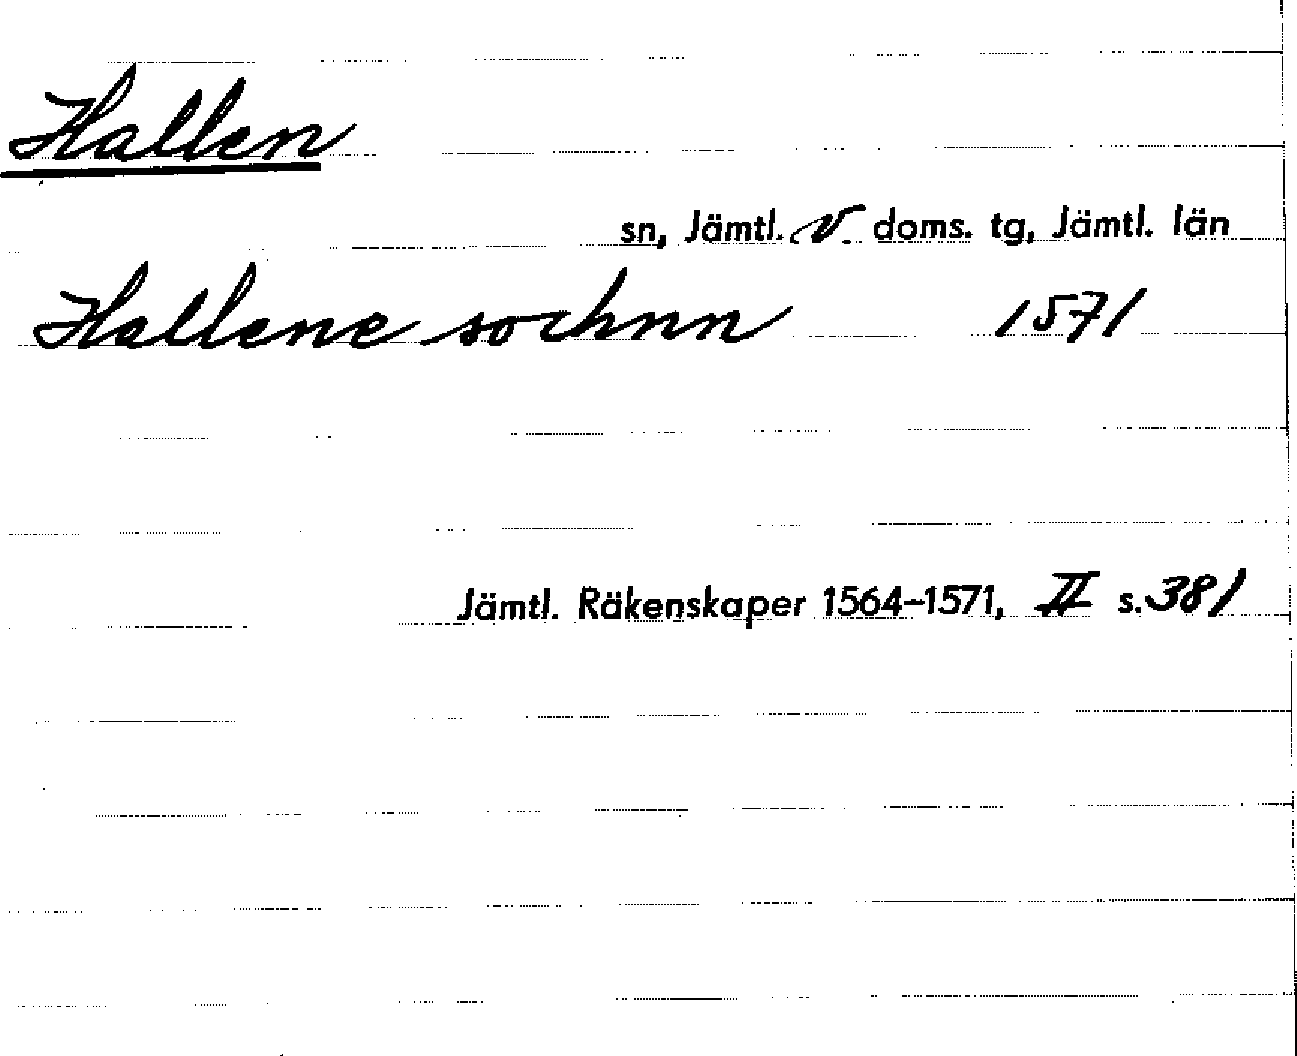 Hallen
sn, Jämtl. v. doms. tg, Jämtl. län
Hallene sochnn 1571
Jämtl. Räkenskaper 1564-1571, II s. 381